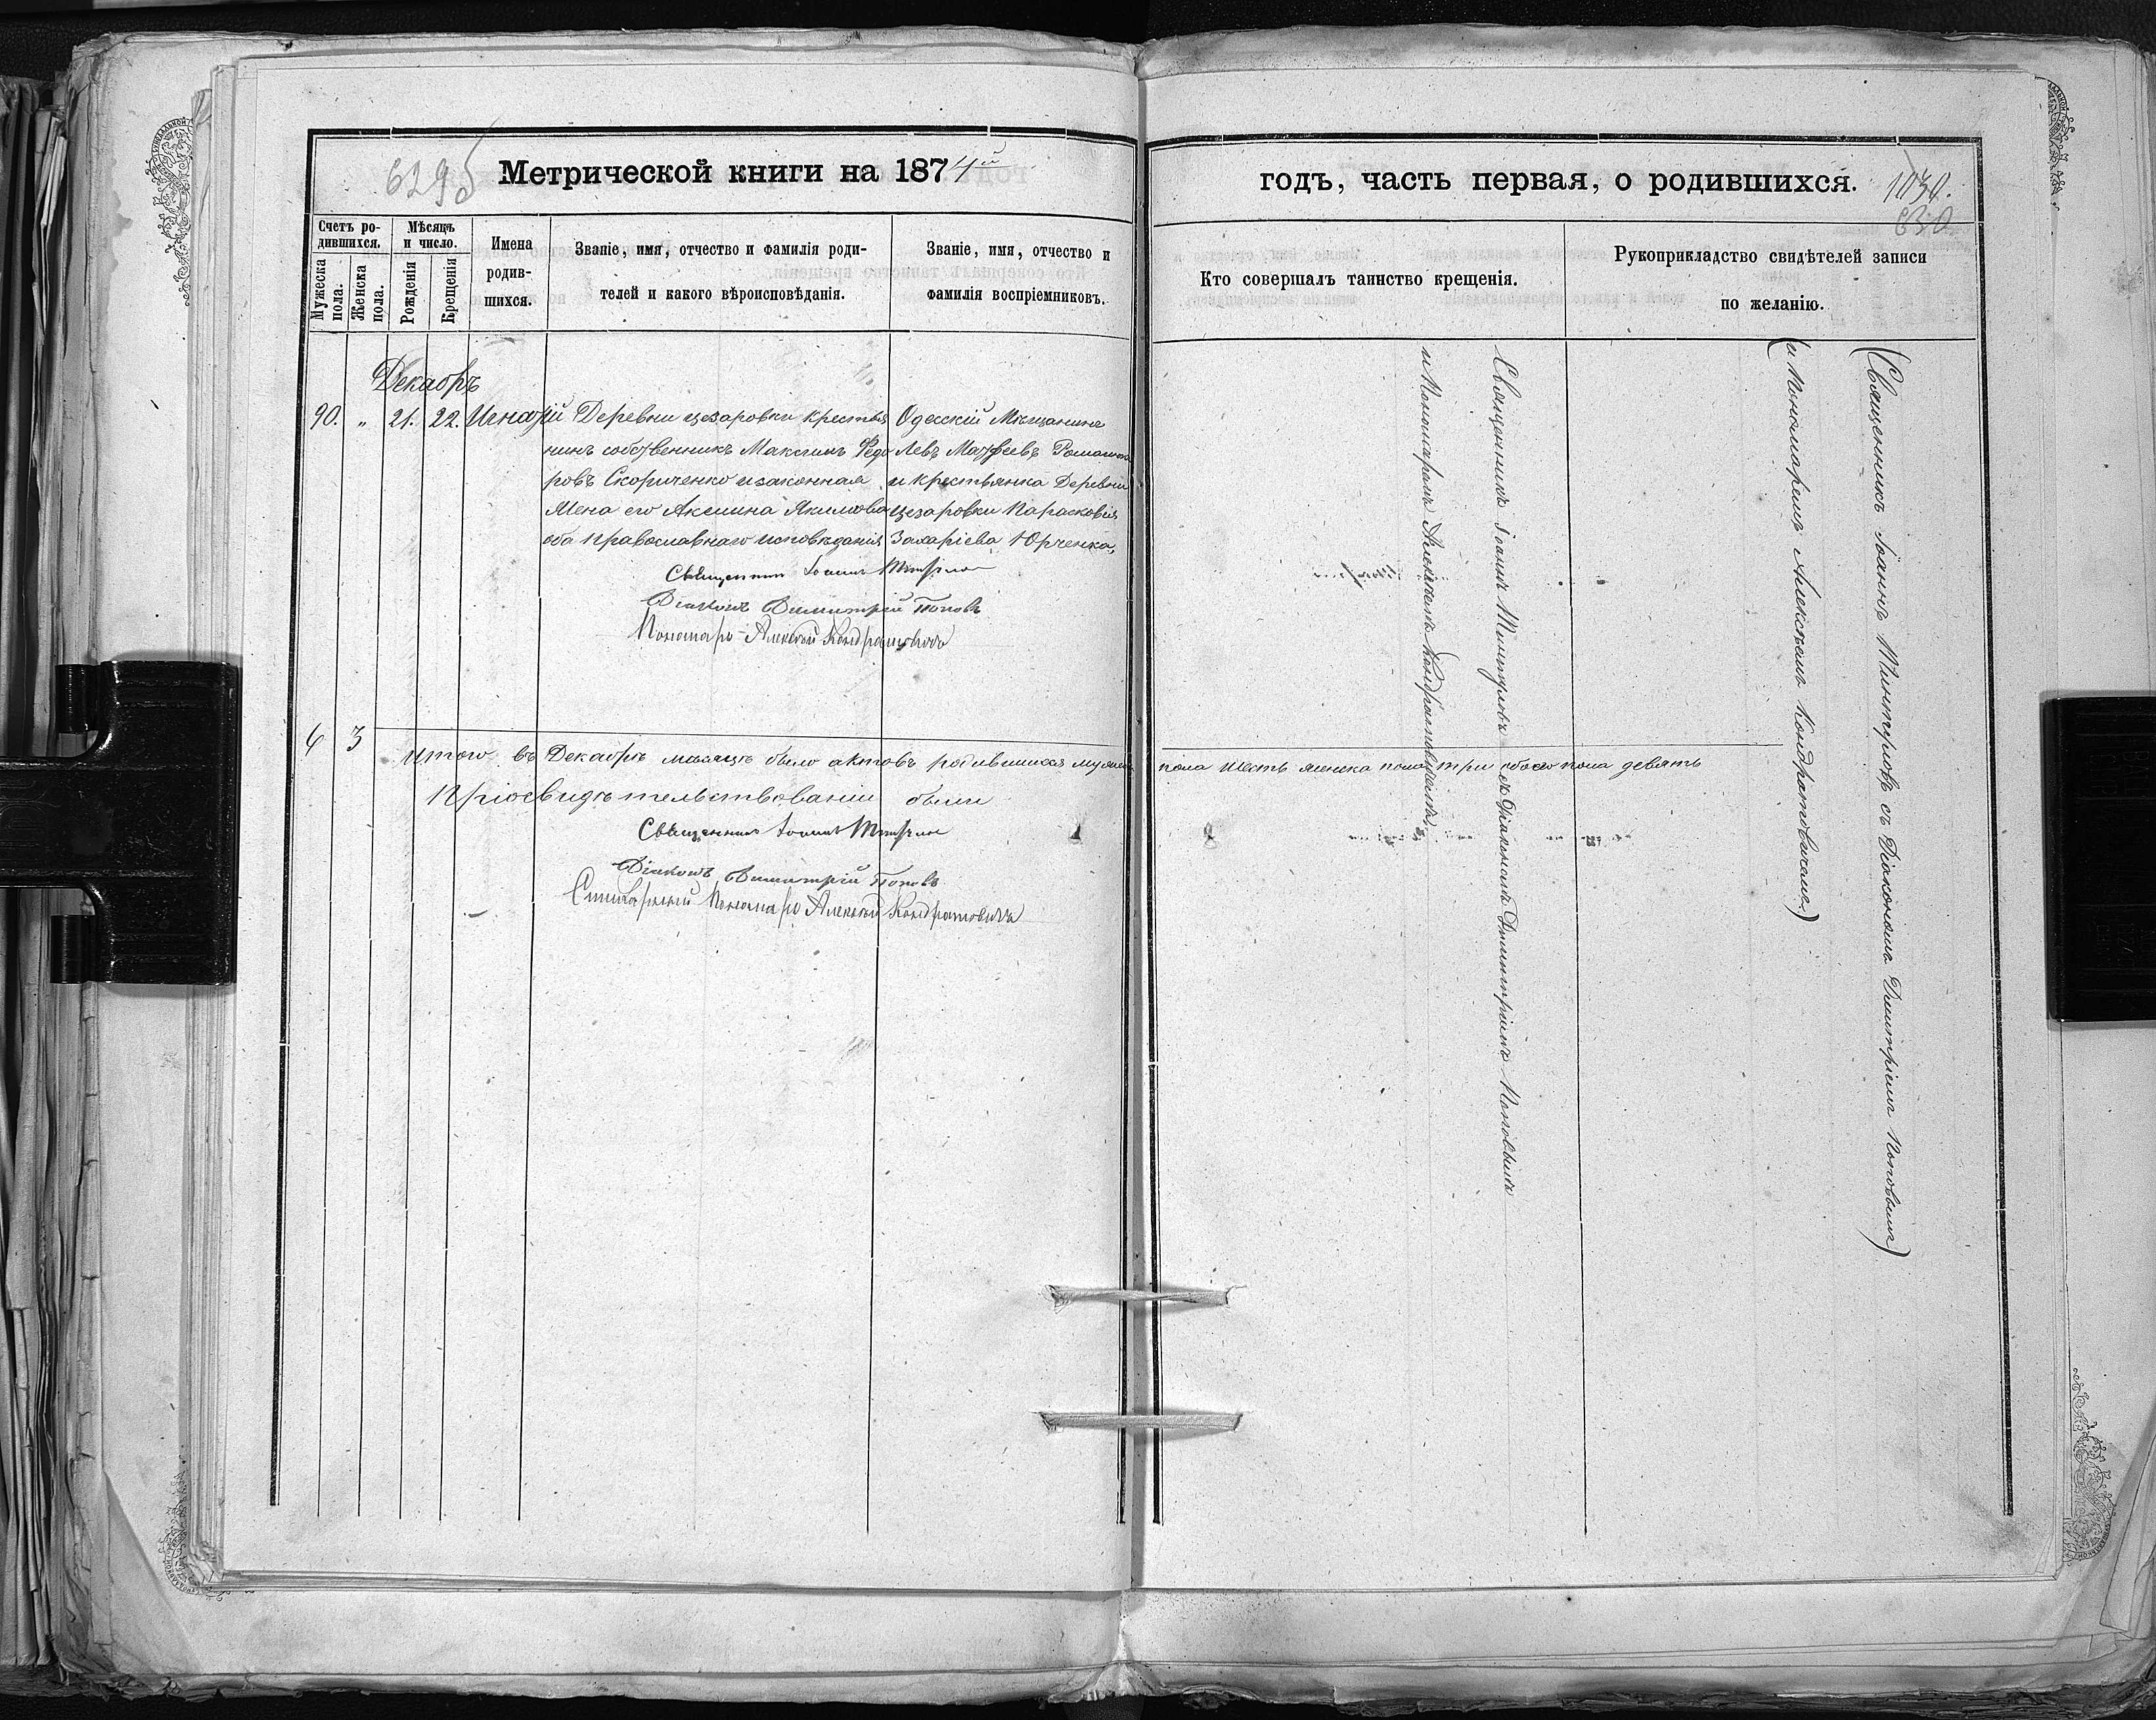 6295
Метрической книги на 1874й
годъ, часть первая, о родившихся.
1030.
630
Счетъ родившихся.
Мужеска пола.
Женска пола.
Мѣсяцъ и число.
Рожденія
Крещенія
Имена родив-
шихся.
Званіе, имя, отчество и фамилія роди-
телей и какого вѣроисповѣданія.
Званіе, имя, отчество и
фамилія воспріемниковъ.
Кто совершалъ таинство крещенія.
Рукоприкладство свидѣтелей записи
по желанію.
Декабрь
90. „ 21. 22. Игнатій
Деревни Цезаровки крестья
нинъ собственникъ Максимъ Федо
ровъ Скориченко и законная
Жена его Аксинія Якимова
оба Православнаго исповѣданія
Одесскій Мѣщанинъ
Левъ Матфеевъ
и крестьянка Деревни
Цезаровки Параскевія
Захаріева Юрченка,
Священникъ Іоаннъ
Діаконъ Димитрій Поповъ
Пономарь Алексѣй Кондратовичъ
Священникъ Іоаннъ съ Діакономъ Димитріемъ Поповымъ
и Пономаремъ Алексѣемъ Кондратовичемъ.
(Священникъ Іоаннъ съ Діакономъ Димитріемъ Поповымъ)
(и Пономаремъ Алексѣемъ Кондратовичемъ.)
6 3
Итого въ Декабрѣ мѣсяцѣ было актовъ родившихся мужеска
пола шесть женска пола три обоего пола девять
При освидѣтельствованіи были
Священникъ Іоаннъ
Діаконъ Димитрій Поповъ
Пономарь Алексѣй Кондратовичъ